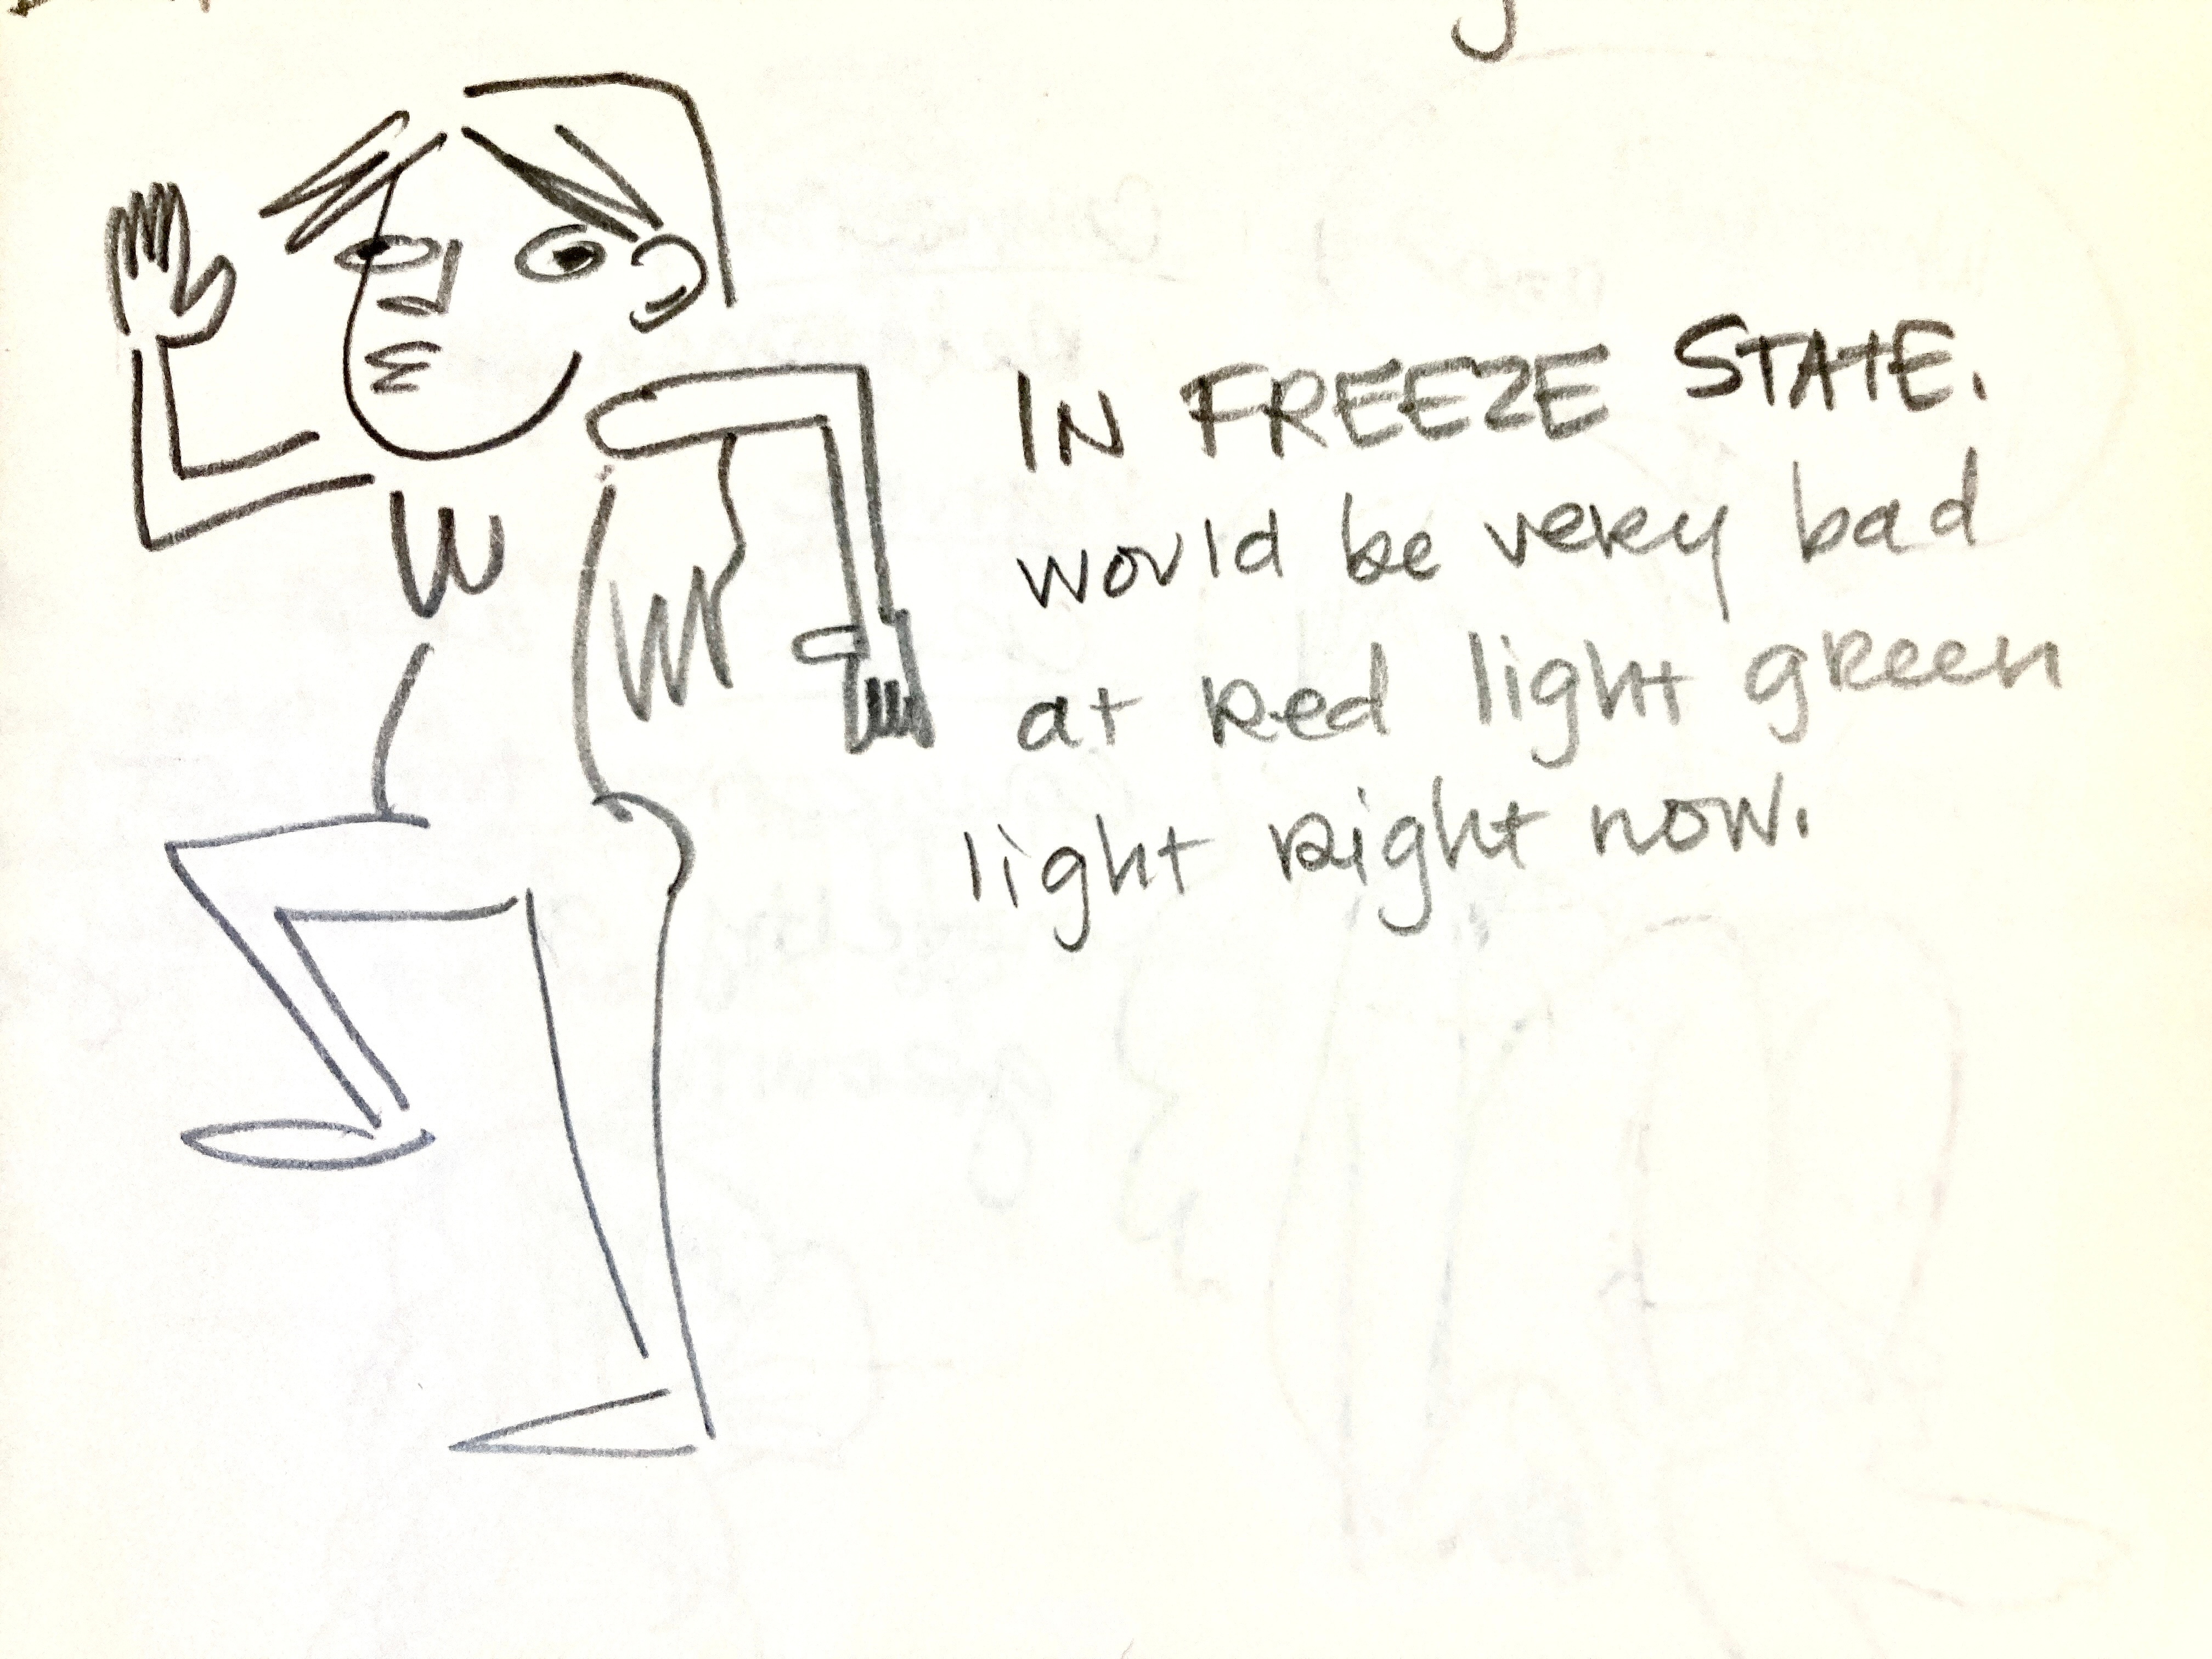 IN FREEZE STATE.
would be very bad
at red light green
light right now.